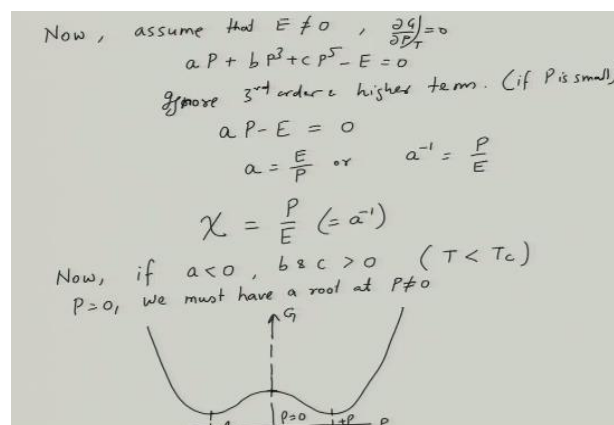 Now, assume that E ≠ 0, ∂G/∂P)_T = 0
a P + b P³ + c P⁵ - E = 0
Ignore 3rd order & higher term. (if P is small)
a P - E = 0
a = E/P or a⁻¹ = P/E
χ = P/E (= a⁻¹)
Now, if a < 0, b & c > 0 (T < Tc)
P = 0, we must have a root at P ≠ 0
G
P=0 +P P